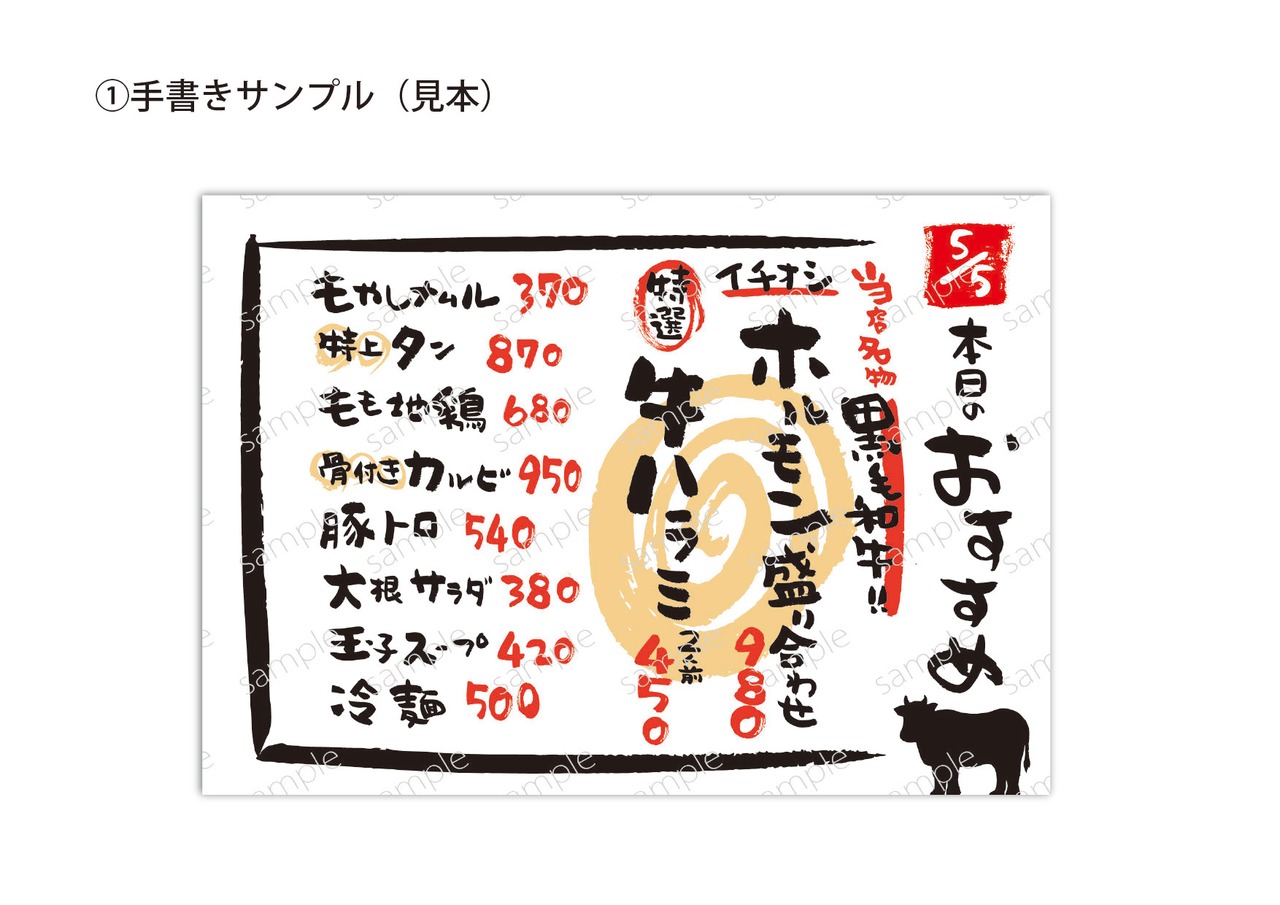 ①手書きサンプル（見本）
5/5
本日のおすすめ
当店名物
黒毛和牛!!
イチオシ
ホルモン盛り合わせ
980
特選
牛ハラミ
一人前
450
もやしナムル 370
特上タン 870
もも地鶏 680
骨付きカルビ 950
豚トロ 540
大根サラダ 380
玉子スープ 420
冷麺 500
sample